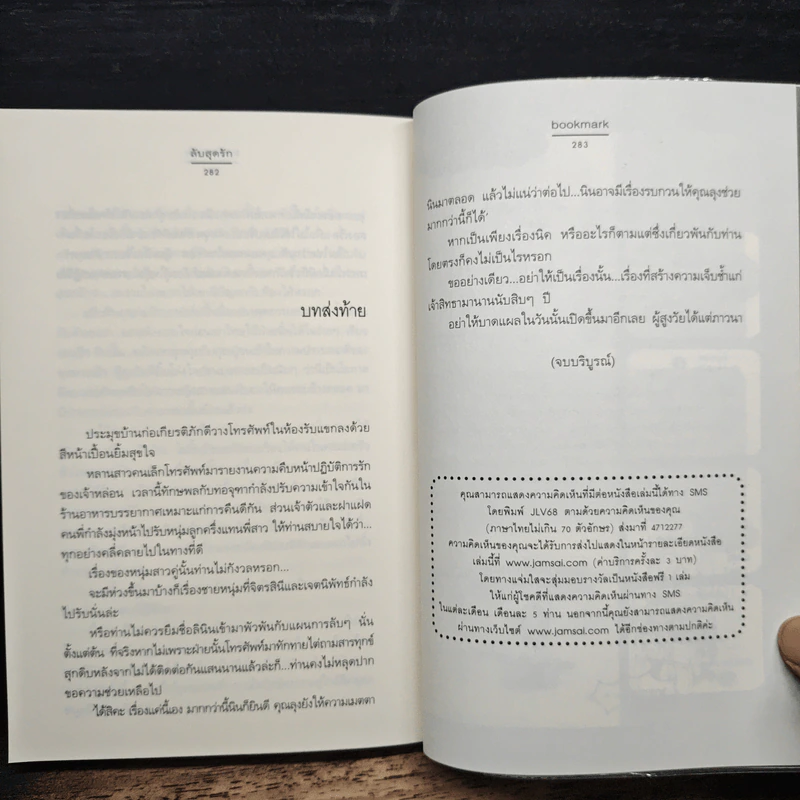 ลับสุดรัก
282
บทส่งท้าย
ประมุขบ้านก่อเกียรติภักดีวางโทรศัพท์ในห้องรับแขกลงด้วย
สีหน้าเปื้อนยิ้มสุขใจ
หลานสาวคนเล็กโทรศัพท์มารายงานความคืบหน้าปฏิบัติการรัก
ของเจ้าหล่อน เวลานี้ทักษพลกับทอจุฑากำลังปรับความเข้าใจกันใน
ร้านอาหารบรรยากาศเหมาะแก่การคืนดีกัน ส่วนเจ้าตัวและฝาแฝด
คนพี่กำลังมุ่งหน้าไปรับหนุ่มลูกครึ่งแทนพี่สาว ให้ท่านสบายใจได้ว่า...
ทุกอย่างคลี่คลายไปในทางที่ดี
เรื่องของหนุ่มสาวคู่นั้นท่านไม่กังวลหรอก...
จะมีห่วงขึ้นมาบ้างก็เรื่องชายหนุ่มที่จิตรสินีและเจตนิพัทธ์กำลัง
ไปรับนั่นล่ะ
หรือท่านไม่ควรยืมชื่อลินินเข้ามาพัวพันกับแผนการลับๆ นั่น
ตั้งแต่ต้น ที่จริงหากไม่เพราะฝ่ายนั้นโทรศัพท์มาทักทายไต่ถามสารทุกข์
สุกดิบหลังจากไม่ได้ติดต่อกันแสนนานแล้วล่ะก็...ท่านคงไม่หลุดปาก
ขอความช่วยเหลือไป
'ได้สิคะ เรื่องแค่นี้เอง มากกว่านี้นินก็ยินดี คุณลุงยังให้ความเมตตา
bookmark
283
นินมาตลอด แล้วไม่แน่ว่าต่อไป...นินอาจมีเรื่องรบกวนให้คุณลุงช่วย
มากกว่านี้ก็ได้'
หากเป็นเพียงเรื่องนิค หรืออะไรก็ตามแต่ซึ่งเกี่ยวพันกับท่าน
โดยตรงก็คงไม่เป็นไรหรอก
ขออย่างเดียว...อย่าให้เป็นเรื่องนั้น...เรื่องที่สร้างความเจ็บช้ำแก่
เจ้าสิทธามานานนับสิบๆ ปี
อย่าให้บาดแผลในวันนั้นเปิดขึ้นมาอีกเลย ผู้สูงวัยได้แต่ภาวนา
(จบบริบูรณ์)
คุณสามารถแสดงความคิดเห็นที่มีต่อหนังสือเล่มนี้ได้ทาง SMS
โดยพิมพ์ JLV68 ตามด้วยความคิดเห็นของคุณ
(ภาษาไทยไม่เกิน 70 ตัวอักษร) ส่งมาที่ 4712277
ความคิดเห็นของคุณจะได้รับการส่งไปแสดงในหน้ารายละเอียดหนังสือ
เล่มนี้ที่ www.jamsai.com (ค่าบริการครั้งละ 3 บาท)
โดยทางแจ่มใสจะสุ่มมอบรางวัลเป็นหนังสือฟรี 1 เล่ม
ให้แก่ผู้โชคดีที่แสดงความคิดเห็นผ่านทาง SMS
ในแต่ละเดือน เดือนละ 5 ท่าน นอกจากนี้คุณยังสามารถแสดงความคิดเห็น
ผ่านทางเว็บไซต์ www.jamsai.com ได้อีกช่องทางตามปกติค่ะ